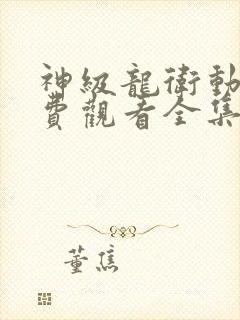 神級龍衛動
費觀看全集
董焦